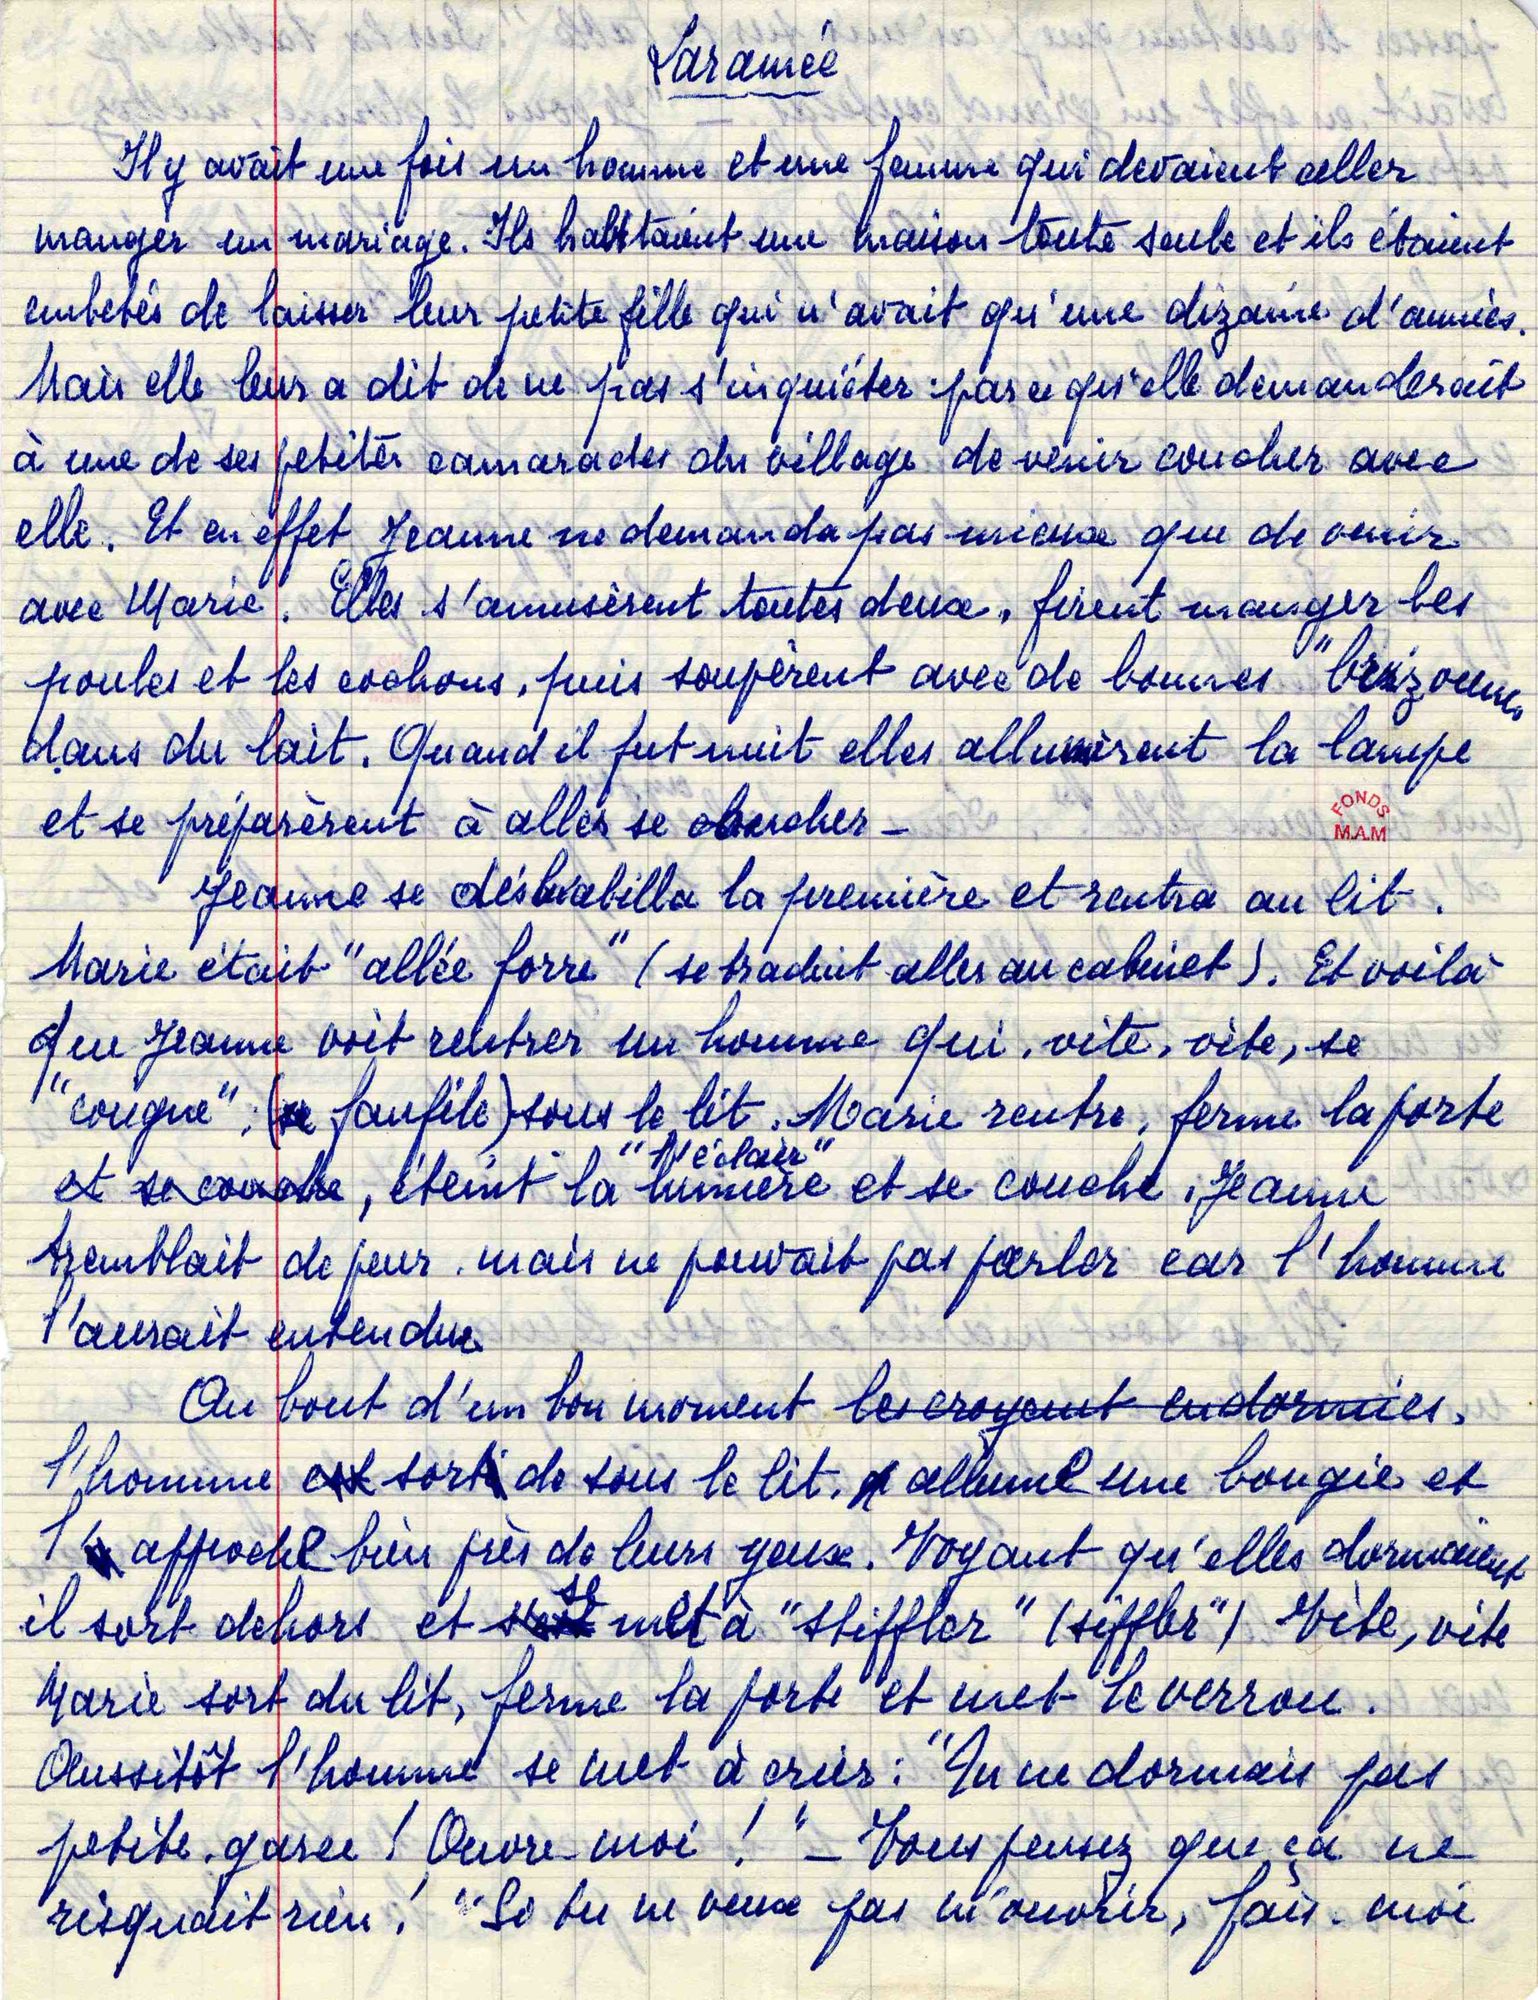 Laramée
Il y avait une fois un homme et une femme qui devaient aller
manger un mariage. Ils habitaient une maison toute seule et ils étaient
embêtés de laisser leur petite fille qui n'avait qu'une dizaine d'années.
Mais elle leur a dit de ne pas s'inquiéter parce qu'elle demanderait
à une de ses petites camarades du village de venir coucher avec
elle. Et en effet Jeanne ne demanda pas mieux que de venir
avec Marie. Elles s'amusèrent toutes deux, firent manger les
poules et les cochons, puis soupèrent avec de bonnes "brizounes
dans du lait. Quand il fut nuit elles allumèrent la lampe
et se préparèrent à aller se coucher -
FONDS
M.A.M
Jeanne se déshabilla la première et rentra au lit.
Marie était "allée forre" (se traduit aller au cabinet). Et voilà
que Jeanne voit rentrer un homme qui, vite, vite, se
"cougne", (se faufile) sous le lit. Marie rentre, ferme la porte
"l'éclair"
et se couche, éteint la lumière et se couche. Jeanne
tremblait de peur mais ne pouvait pas parler car l'homme
l'aurait entendue.
Au bout d'un bon moment les croyant endormies,
l'homme est sort de sous le lit, allume une bougie et
l'approche bien près de leurs yeux. Voyant qu'elles dormaient
se
il sort dehors et met à "stiffler" (siffler") Vite, vite
Marie sort du lit, ferme la porte et met le verrou.
Aussitôt l'homme se met à crier: "Tu ne dormais pas
petite garce ! Ouvre-moi ! " - Vous pensez que ça ne
risquait rien ! "Si tu ne veux pas m'ouvrir, fais-moi